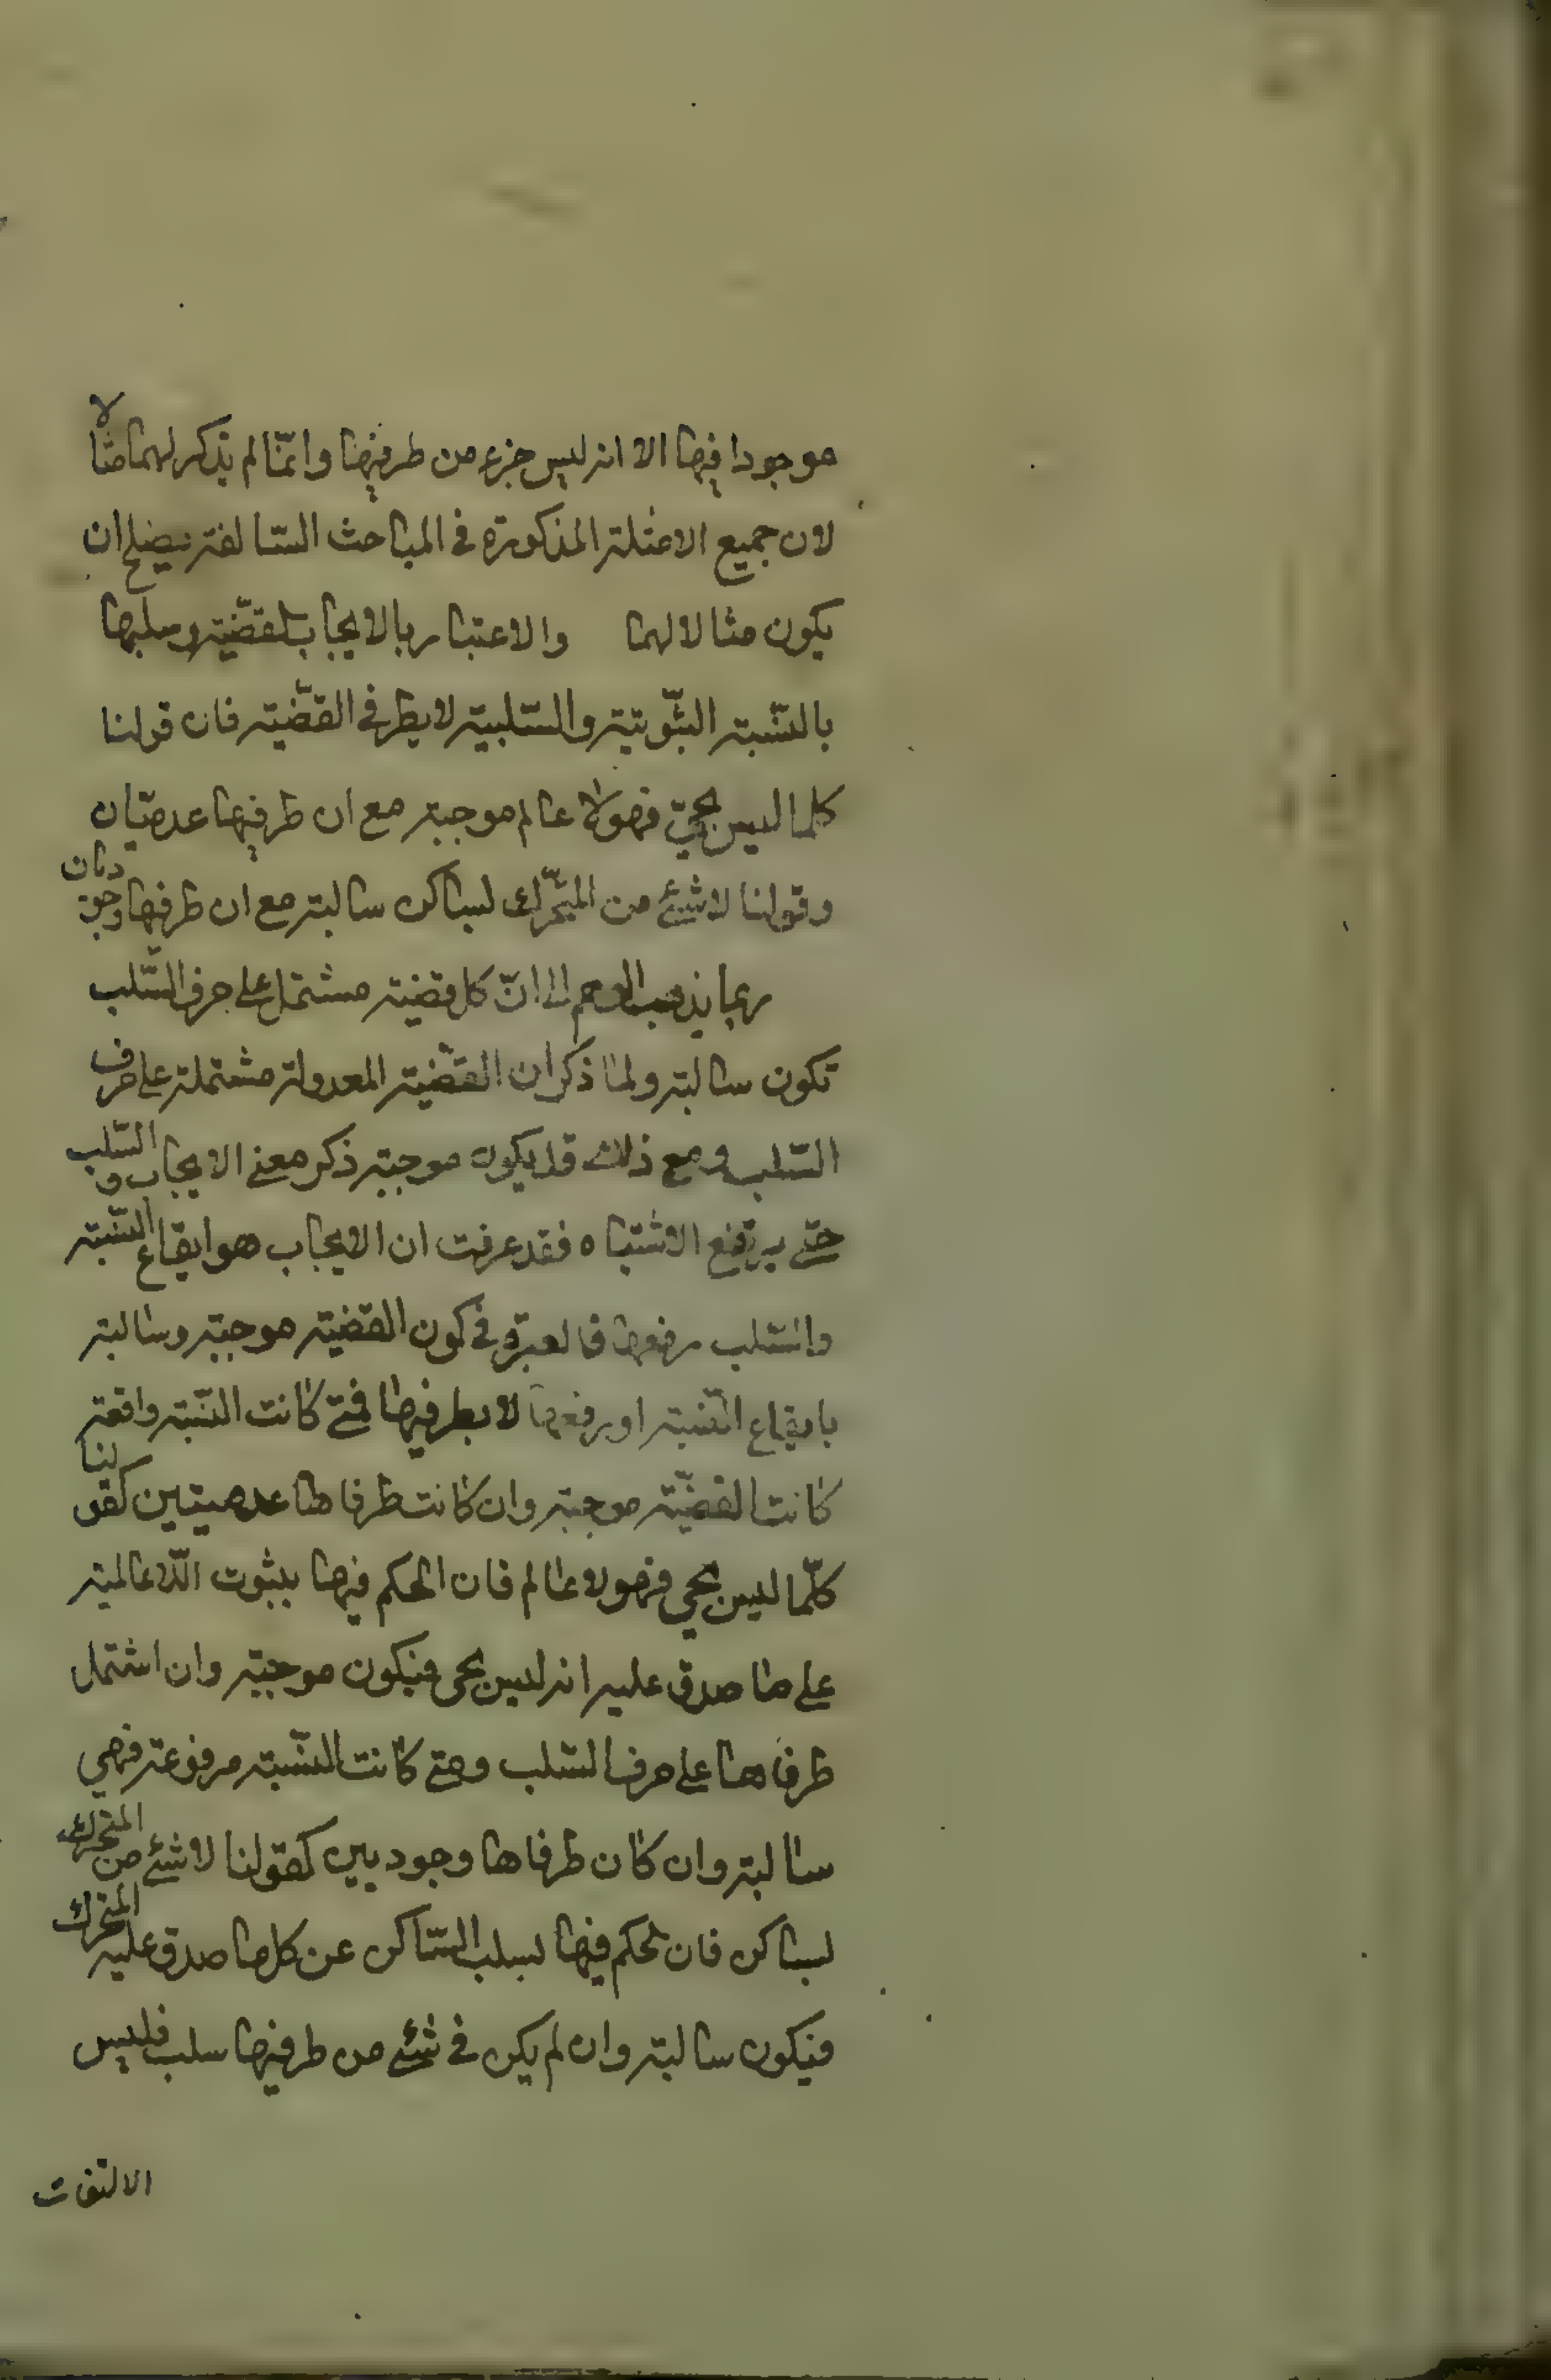 موجودا فيها الا انه ليس جزء من طرفيها وانّما لم يذكر لهما مثالا
لان جميع الامثلة المذكورة في المباحث السّالفة يصلح ان
يكون مثالا لهما والاعتبار بالايجاب القضيّة وسلبها
بالنّسبة الثّبوتية والسّلبية لا بطرفي القضّية فان قولنا
كلما ليس بحيّ فهو لا عالم موجبة مع ان طرفيها عدميّان
وقولنا لا شئ من المتحرّك بساكن سالبة مع ان طرفيها وجوديان
ربما يذهب الوهم الى انّ كل قضية مشتمل على حرف السّلب
تكون سالبة ولما ذكر ان القضّية المعدولة مشتملة على حرف
السّلب ومع ذلك قد يكون موجبة ذكر معنى الايجاب و السّلب
حتى يرتفع الاشتباه فقد عرفت ان الايجاب هو ايقاع النّسبة
والسّلب رفعها فالعبرة في كون القضية موجبة وسالبة
بايقاع النّسبة او رفعها لا بطرفيها فمتى كانت النّسبة واقعة
كانت القضيّة موجبة وان كانت طرفاها عدميتين كقولنا
كلّما ليس بحي فهو لا عالم فان الحكم فيها بثبوت اللّاعالمية
على ما صدق عليه انه ليس بحى فيكون موجبة وان اشتمل
طرفاها على حرف السّلب ومتى كانت النّسبة مرفوعة فهي
سالبة وان كان طرفاها وجوديين كقولنا لا شئ من المتحرك
بساكن فان الحكم فيها بسلب السّاكن عن كل ما صدق عليه المتحرك
فيكون سالبة وان لم يكن في شئ من طرفيها سلب فليس
الالتفات